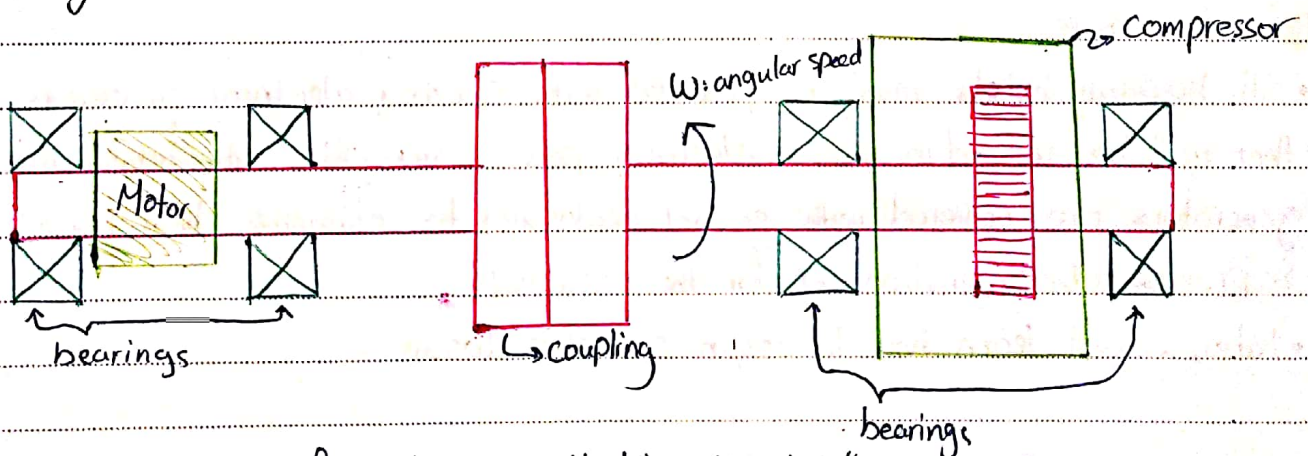 compressor
ω: angular speed
Motor
bearings
coupling
bearings